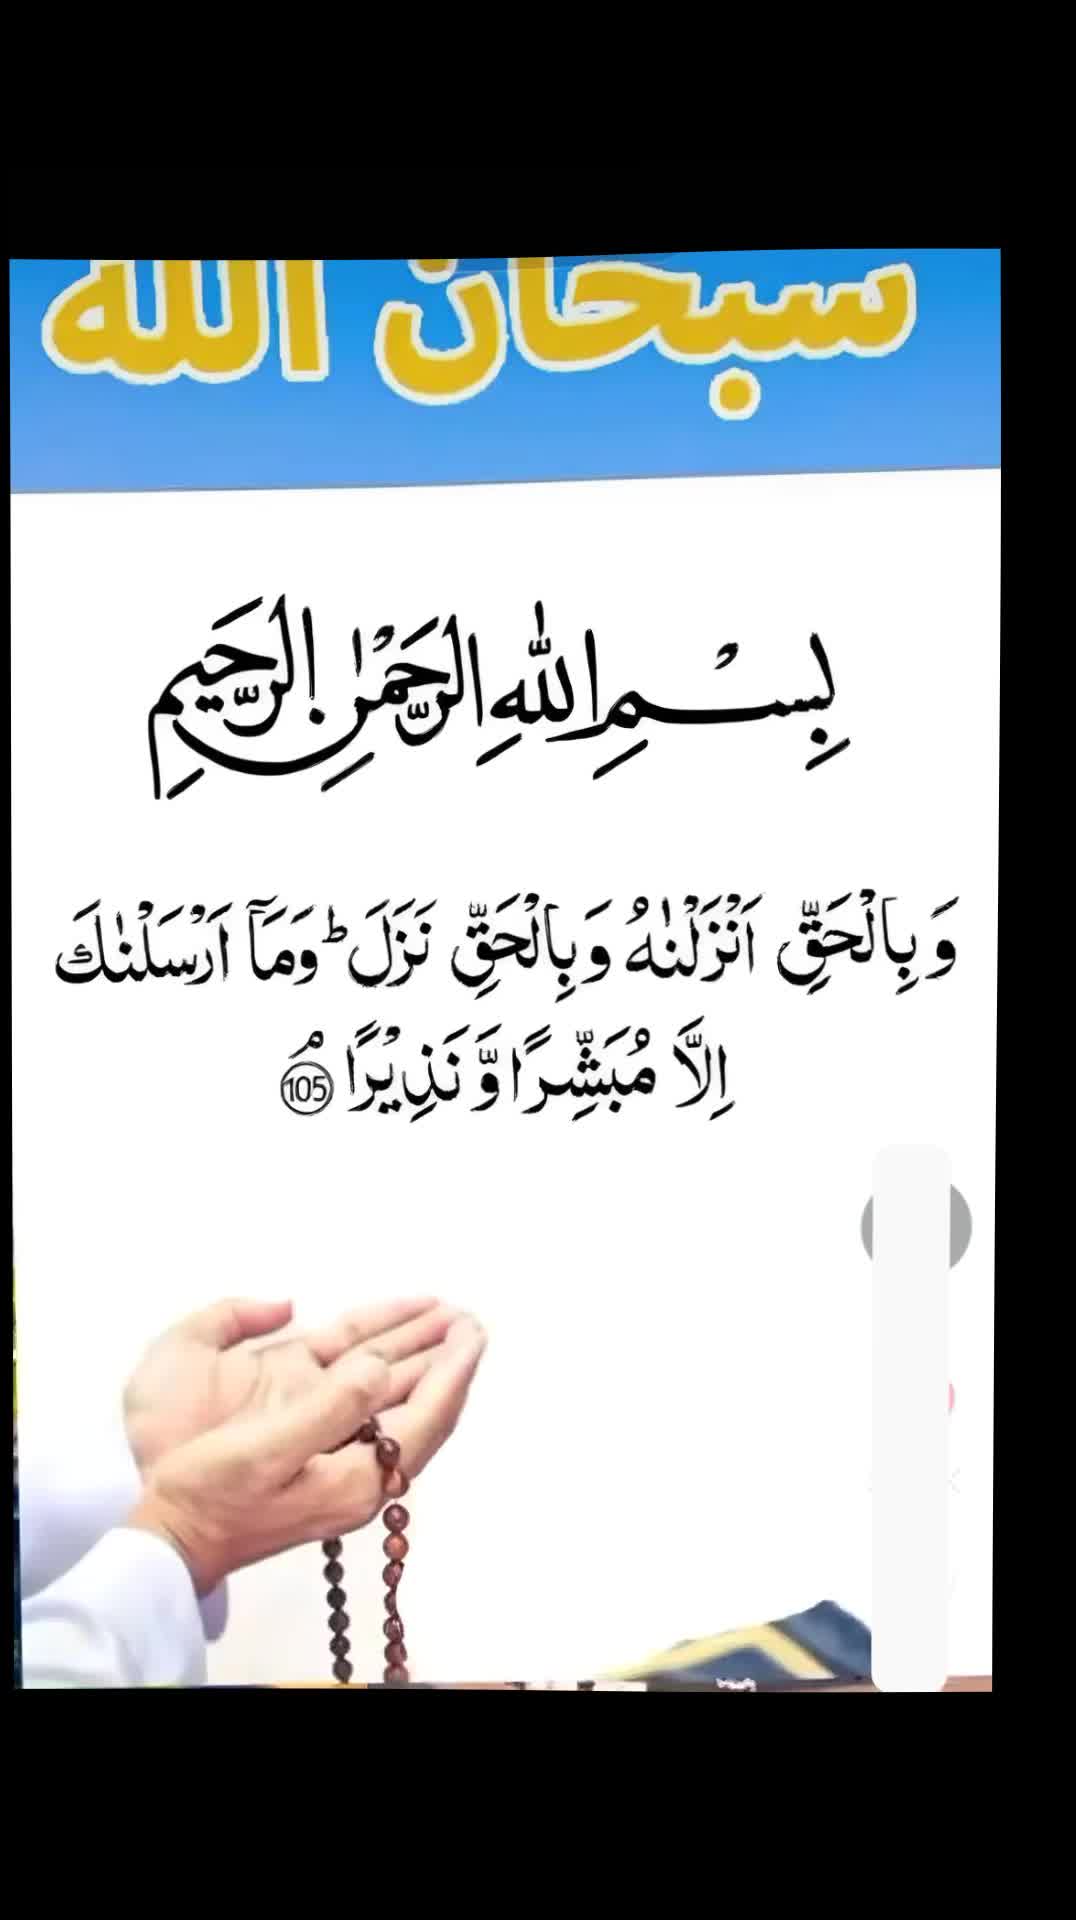 سبحان الله
بِسْمِ اللّٰهِ الرَّحْمٰنِ الرَّحِيْمِ
وَ بِالْحَقِّ اَنْزَلْنٰهُ وَ بِالْحَقِّ نَزَلَ ؕ وَ مَاۤ اَرْسَلْنٰكَ
اِلَّا مُبَشِّرًا وَّ نَذِيْرًا ۘ 105